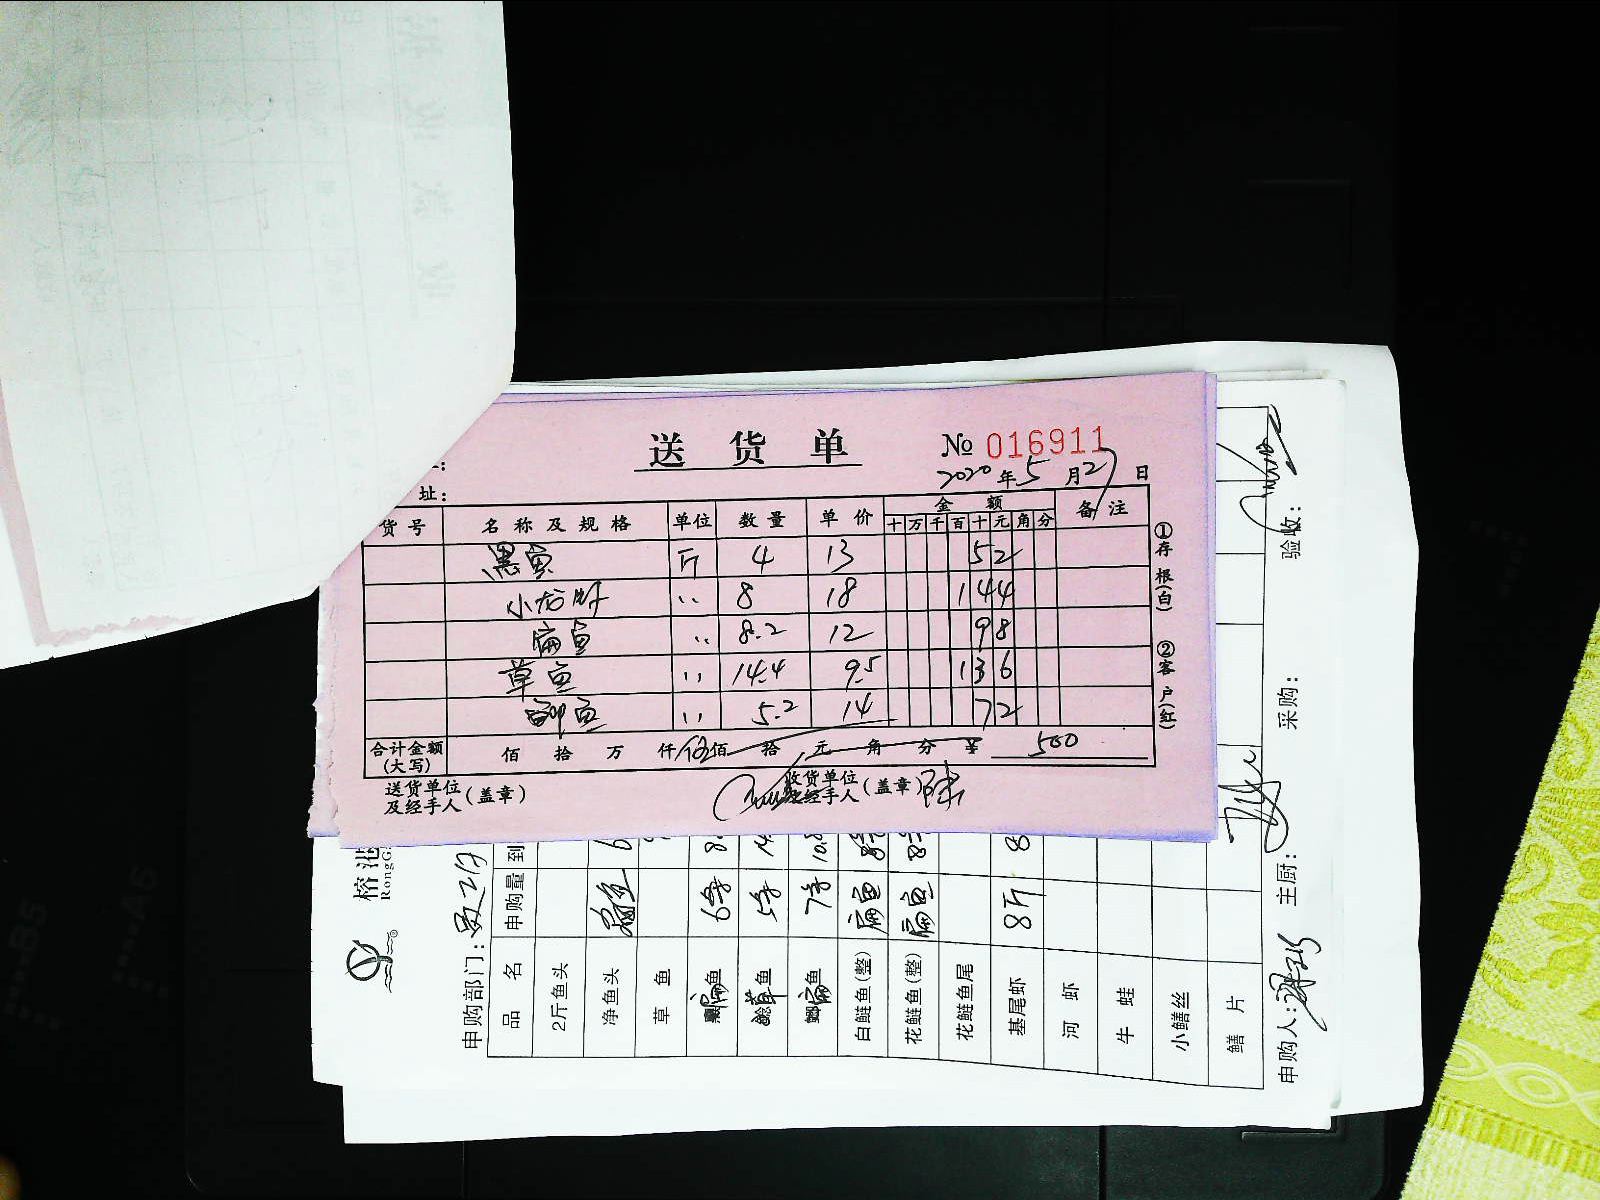 送 货 单
№ 016911
2020 年 5 月 27 日
址：
货号 名称及规格 单位 数量 单价 金额 备注
十 万 千 百 十 元 角 分
黑鱼 斤 4 13 52
小龙虾 〃 8 18 144
扁鱼 〃 8.2 12 98
草鱼 〃 14.4 9.5 136
鲫鱼 〃 5.2 14 72
合计金额(大写) 佰 拾 万 仟 伍佰 拾 元 角 分 ¥ 500
送货单位及经手人(盖章) 收货单位及经手人(盖章) 陈
①存根(白) ②客户(红)
榕港
RongG
申购部门：
品名 申购量 到
2斤鱼头
净鱼头
草鱼
扁鱼 6条
草鱼 5条
扁鱼 7条
白鲢鱼(整) 扁鱼
花鲢鱼(整) 扁鱼
花鲢鱼尾
基尾虾 8斤 8
河虾
牛蛙
小鳝丝
鳝片
申购人： 主厨： 采购： 验收：